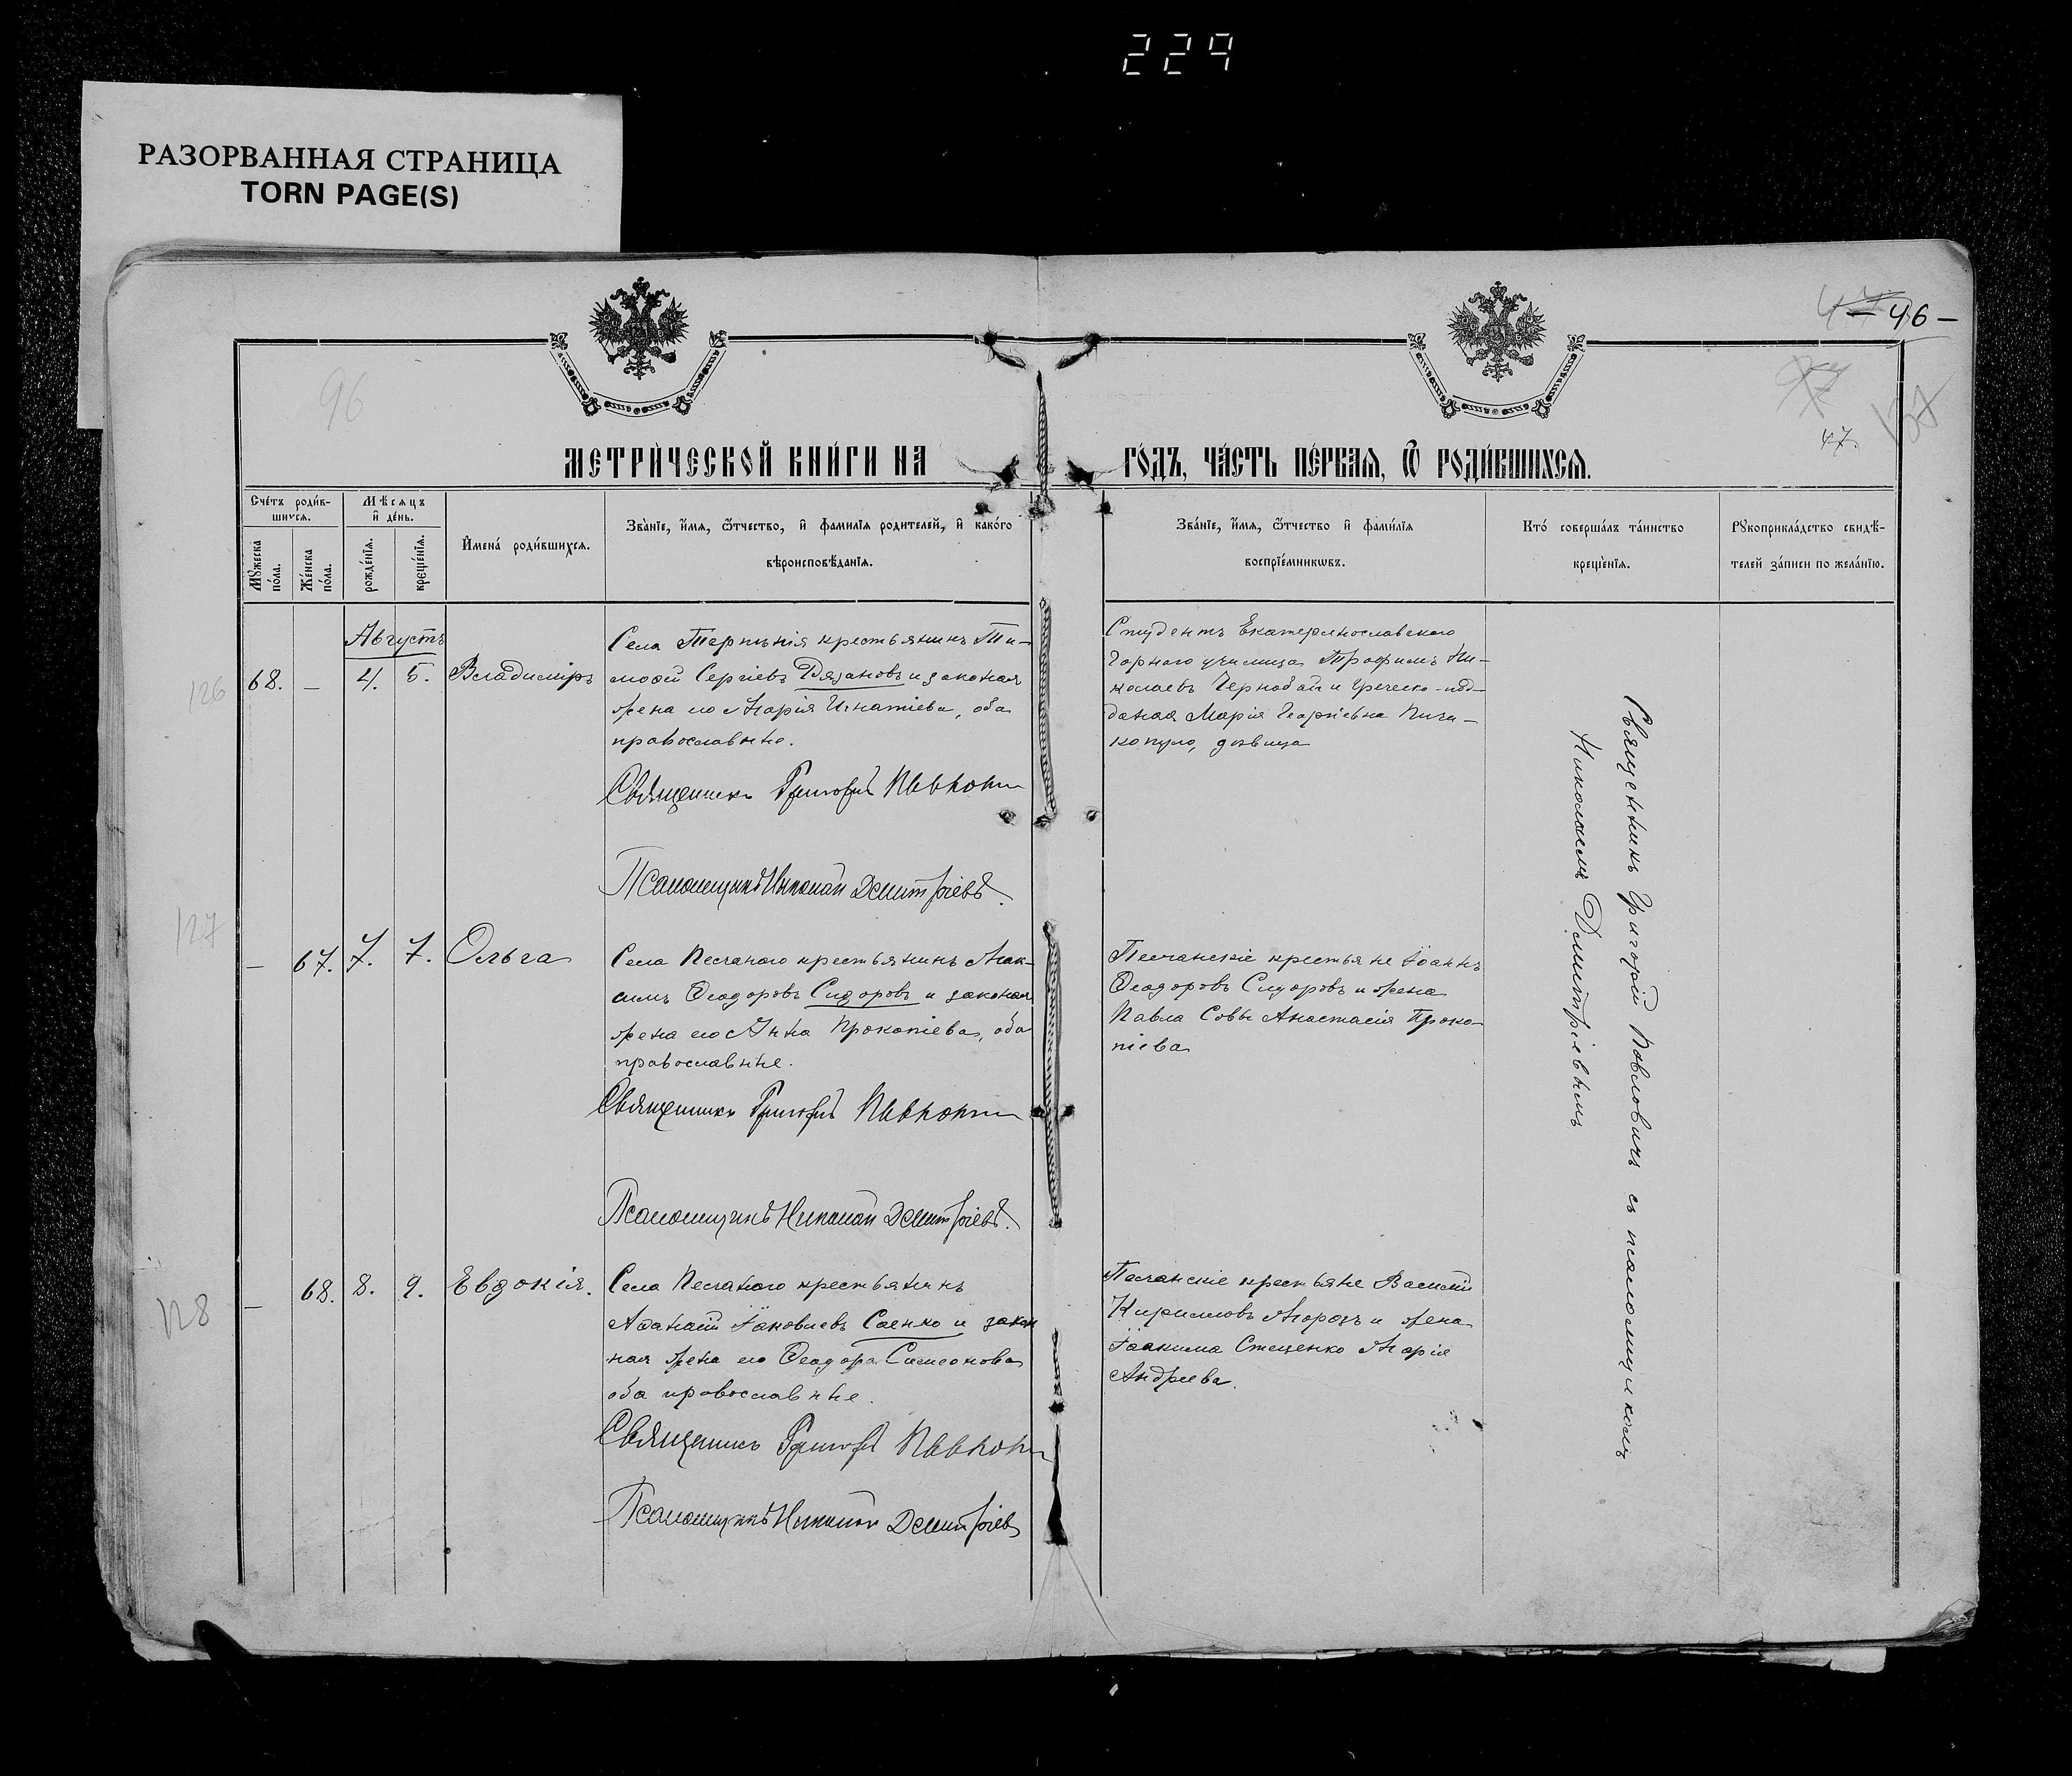 229
РАЗОРВАННАЯ СТРАНИЦА
TORN PAGE(S)
— 46 —
96
47.
МЕТРИ́ЧЕСКОЙ КНИ́ГИ НА
ГО́ДЪ, ЧА́СТЬ ПЕ́РВАѦ, Ѿ РОДИ́ВШИХСѦ.
Сче́тъ роди́в-
шихсѧ.
Мꙋ́жеска
по́ла.
Же́нска
по́ла.
Мѣ́сѧцъ
и҆ де́нь.
рожде́нїѧ.
креще́нїѧ.
И҆мена́ роди́вшихсѧ.
Зва́нїе, и҆́мѧ, ѻ҆́тчество, и҆ фами́лїѧ роди́телей, и҆ како́го
вѣроисповѣ́данїѧ.
Зва́нїе, и҆́мѧ, ѻ҆́тчество и҆ фами́лїѧ
воспрїе́мникѡвъ.
Кто́ соверша́лъ та́инство
креще́нїѧ.
Рꙋкоприкла́дство свидѣ́-
телей за́писи по жела́нїю.
126
68.
—
Августъ
4.
5.
Владиміръ
Села Терпѣнія крестьянинъ Ти-
мофей Сергіевъ Рязановъ и законая
жена его Марія Игнатіева, оба
православные.
Священникъ Григорій
Псаломщикъ Николай Дмитріевъ.
Студентъ Екатеринославскаго
Горнаго училища Трофимъ Ни-
колаевъ Чернобай и Греческо-под-
даная Марія Георгіевна Пича-
копуло, дѣвица
Священникъ Григорій Павловичъ съ псаломщикомъ
Николаемъ Дмитріевымъ
127
—
67.
7.
7.
Ольга
Села Песчаного крестьянинъ Мак-
симъ Ѳеодоровъ Сидоровъ и законая
жена его Анна Прокопіева, оба
православные.
Священникъ Григорій
Псаломщикъ Николай Дмитріевъ.
Песчанскіе крестьяне Іоаннъ
Ѳеодоровъ Сидоровъ и жена
Павла Совы Анастасія Проко-
піева
128
—
68.
8.
9.
Евдокія.
Села Песчаного крестьянинъ
Аѳанасій Іаковлевъ Саенко и закон
ная жена его Ѳеодора Самсонова
оба православные.
Священникъ Григорій
Псаломщикъ Николай Дмитріевъ
Песчанскіе крестьяне Василій
Кирилловъ Морозъ и жена
Іоакима Стеценко Марія
Андреева.